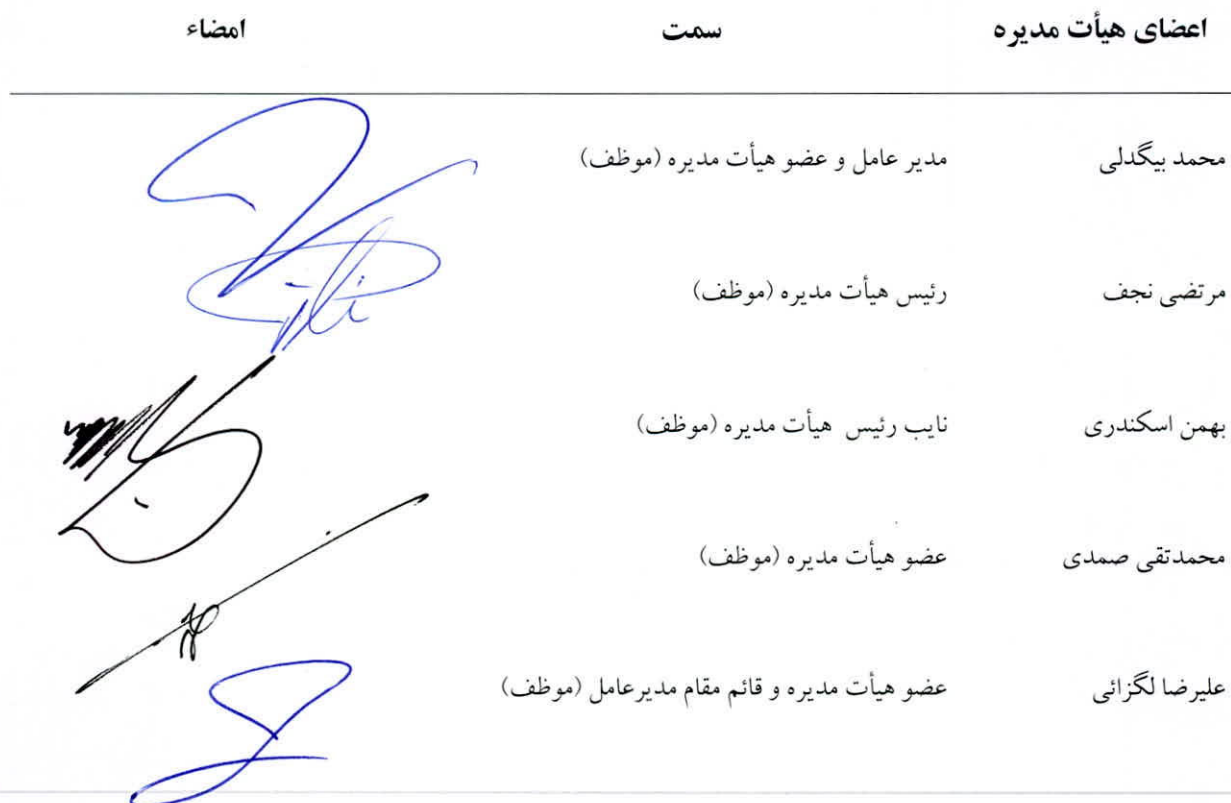 اعضای هیأت مدیره سمت امضاء
محمد بیگدلی مدیر عامل و عضو هیأت مدیره (موظف)
مرتضی نجف رئیس هیأت مدیره (موظف)
بهمن اسکندری نایب رئیس هیأت مدیره (موظف)
محمدتقی صمدی عضو هیأت مدیره (موظف)
علیرضا لگزائی عضو هیأت مدیره و قائم مقام مدیرعامل (موظف)